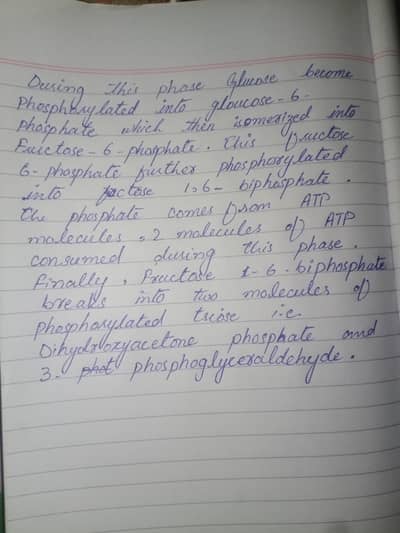 During this phase Glucose become
Phosphorylated into gloucose-6-
phosphate which then isomerized into
Fructose-6-phosphate. This fructose
6-phosphate further phosphorylated
into fructose 1,6-biphosphate.
The phosphate comes from ATP
molecules, 2 molecules of ATP
consumed during this phase.
Finally, Fructose 1-6-biphosphate
breaks into two molecules of
phosphorylated triose i.e
Dihydroxyacetone phosphate and
3-phot phosphoglyceraldehyde.